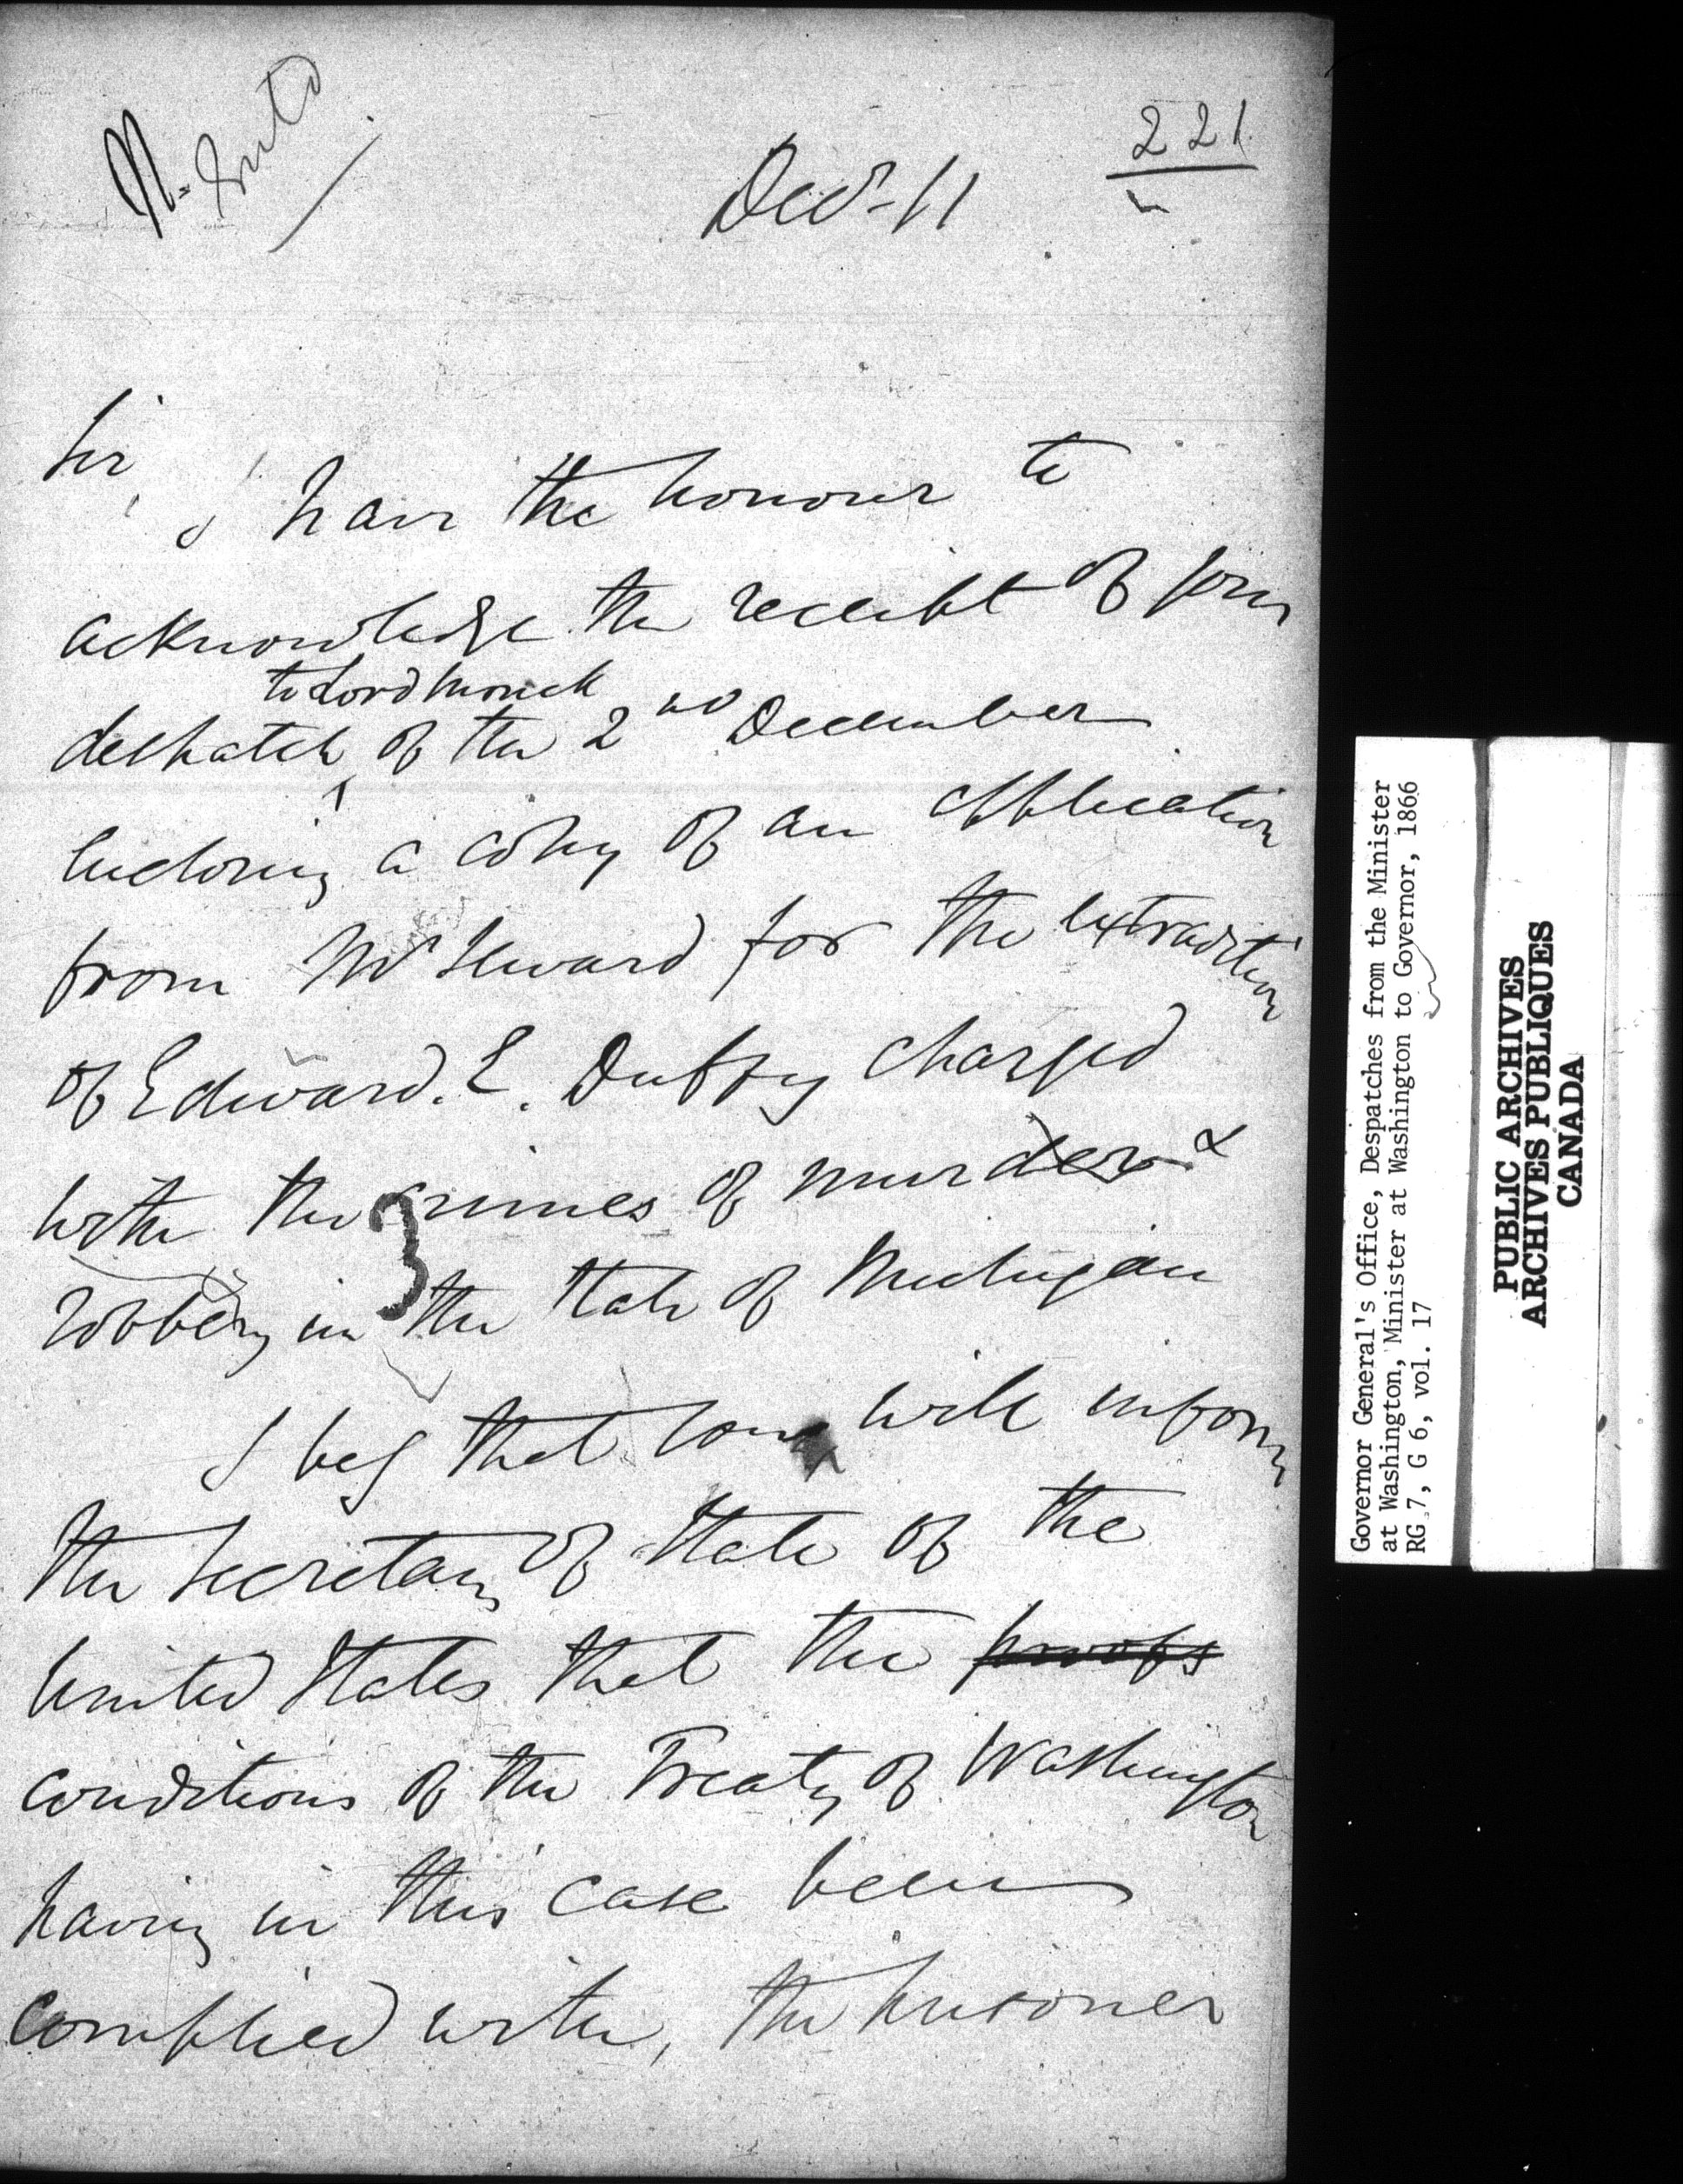 221
Decr 11
Sir,
I have the honour to
acknowledge the receipt of your
to Lord Monck
despatch of the 2nd December
enclosing a copy of an application
from Mr Seward for the extradition
of Edward. E. Duffy charged
with the crimes of murder &
3
robbery in the State of Michigan
I beg that you will inform
the Secretary of State of the
United States that the proofs
conditions of the Treaty of Washington
having in this case been
complied with, the prisoner
Governor General's Office, Despatches from the Minister
at Washington, Minister at Washington to Governor, 1866
RG 7, G 6, vol. 17
PUBLIC ARCHIVES
ARCHIVES PUBLIQUES
CANADA